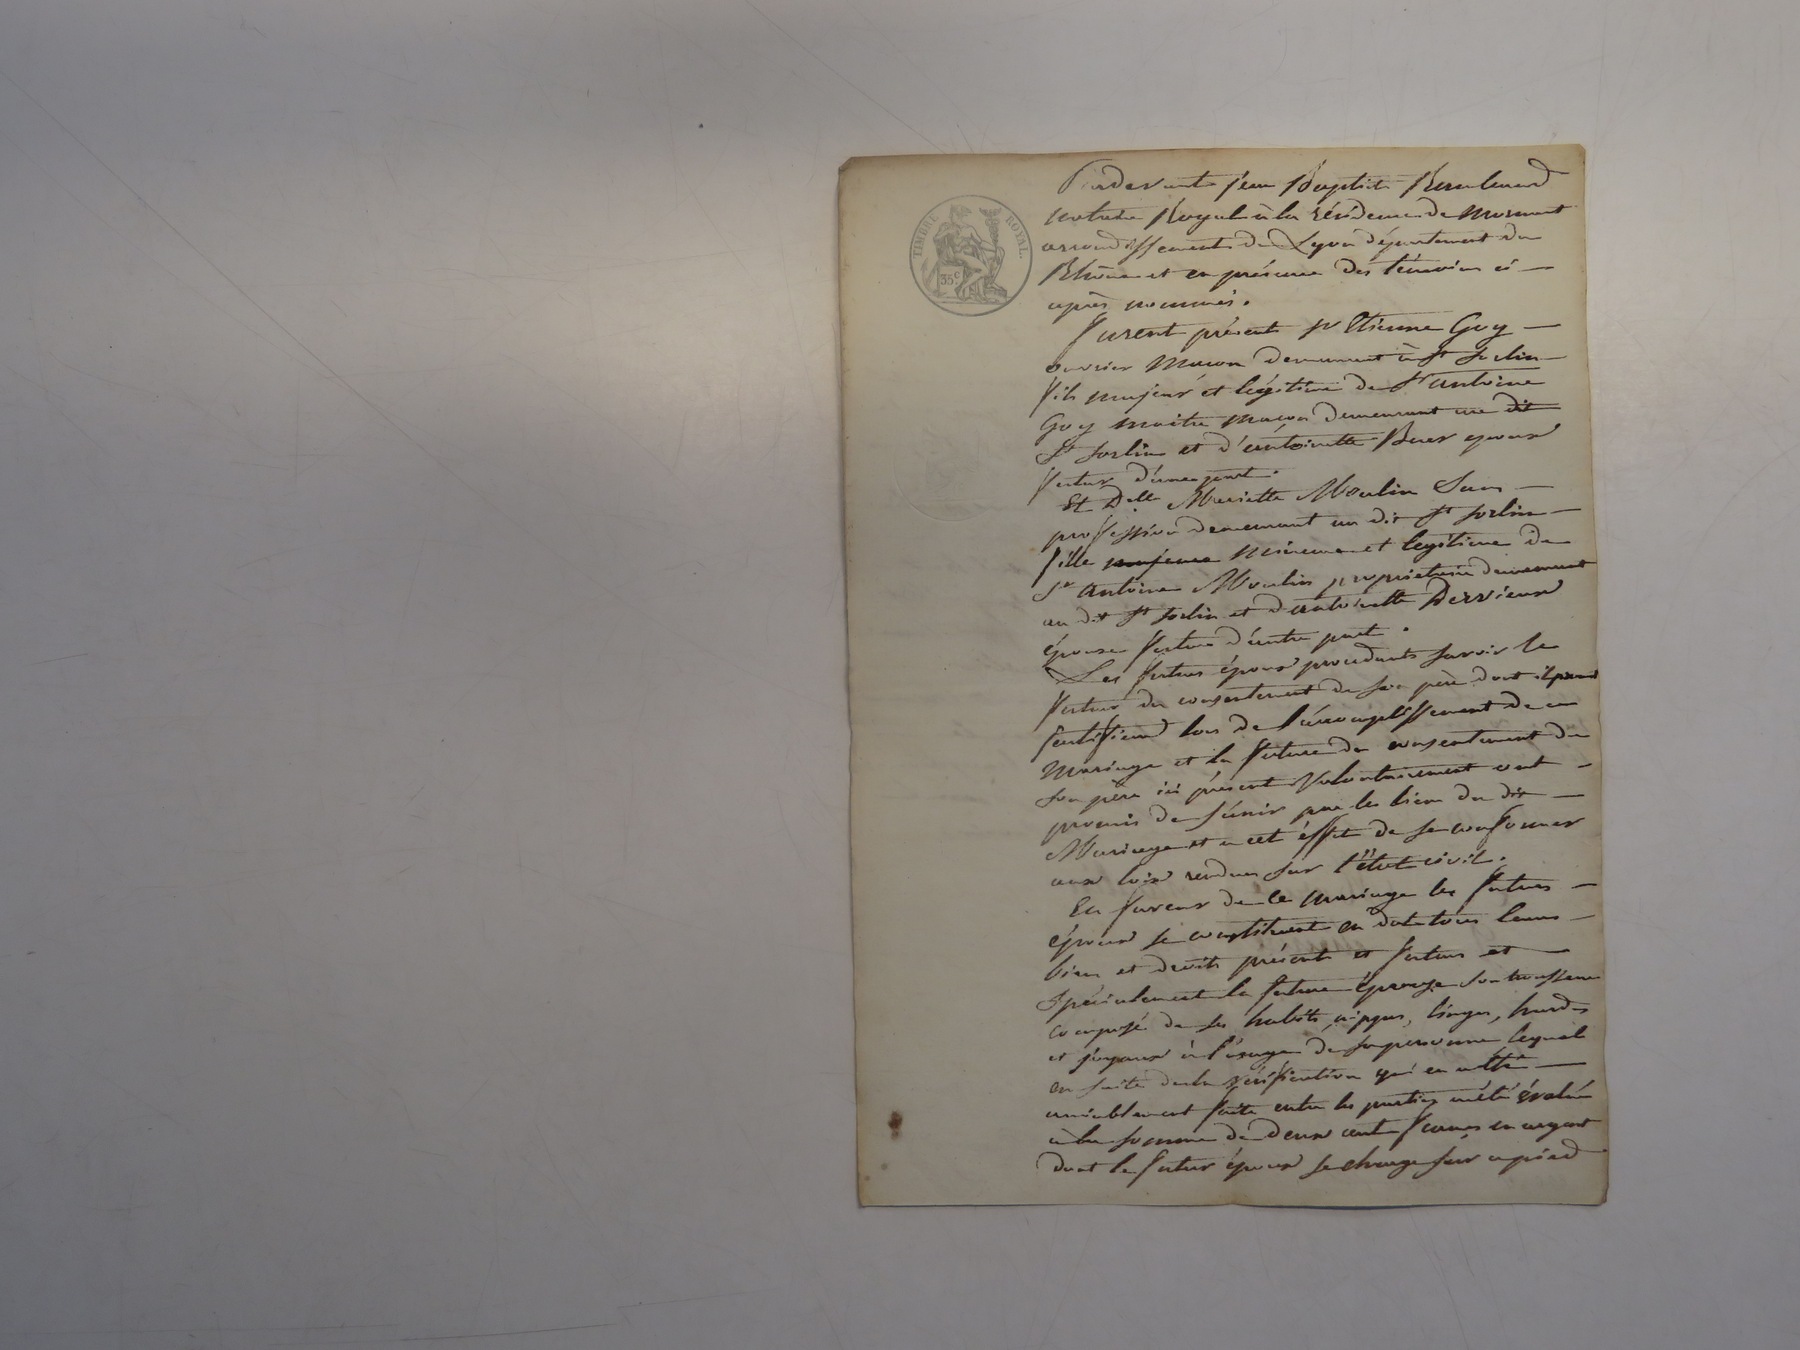 TIMBRE ROYAL
35 c
Pardevant Jean Baptiste
notaire Royal à la résidence de Mornant
arrondissement de Lyon département du
Rhône et en présence des témoins ci —
après nommés.
Furent présent Sr Etienne Goy —
ouvrier Macon demeurant à St Sorlin —
fils majeur et légitime de Sr antoine
Goy maitre maçon demeurant au dit
St Sorlin et d'antoinette époux
futur d'une part.
Et Dlle Mariette Moulin Sans —
profession demeurant au dit St Sorlin —
fille majeure mineure et légitime de
Sr antoine Moulin propriétaire demeurant
au dit St Sorlin et d'antoinette Dervieux
épouse future d'autre part.
Les futurs époux procédants savoir le
futur du consentement de son père dont il
lors de l'accomplissement de ce
Mariage et la future du consentement de
son père ici présent Volontairement ont —
promis de s'unir par les liens du dit —
Mariage et a cet éffet de se conformer
aux loix rendues sur l'état civil.
En faveur de ce mariage les futurs —
époux se constituent en dot tous leurs —
biens et droits présents et futurs et —
spécialement la future épouse son trousseau
composé de ses habits, nippes, linges, hardes
et joyaux à l'usage de sa personne lequel
en suite de la vérification qui en a été —
amiablement faite entre les parties a été évalué
à la somme de deux cents francs en argent
dont le futur époux se charge